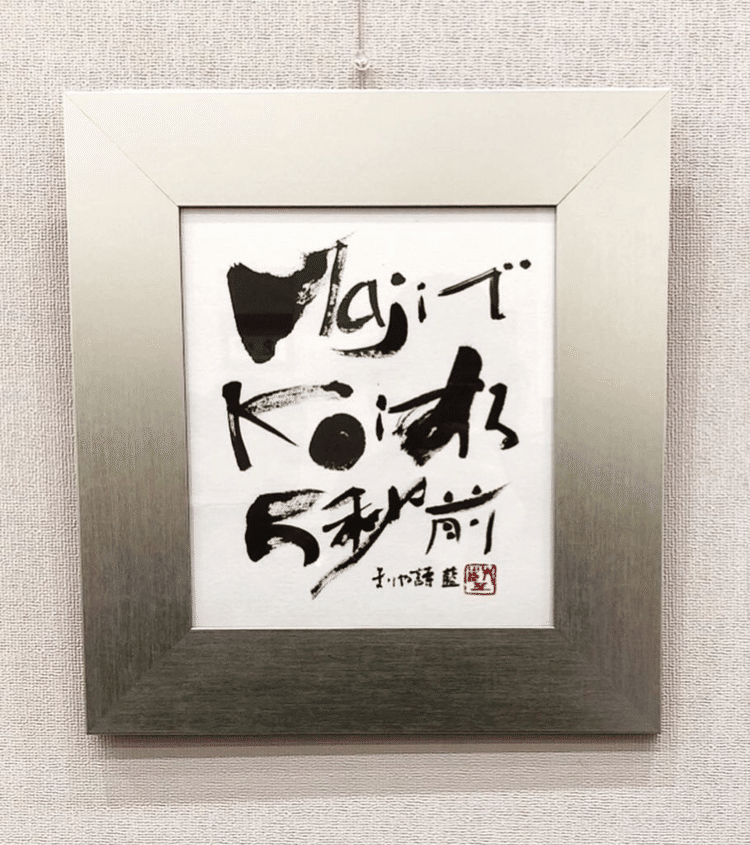 Majiで
Koiする
5秒前
まりや詩 藍